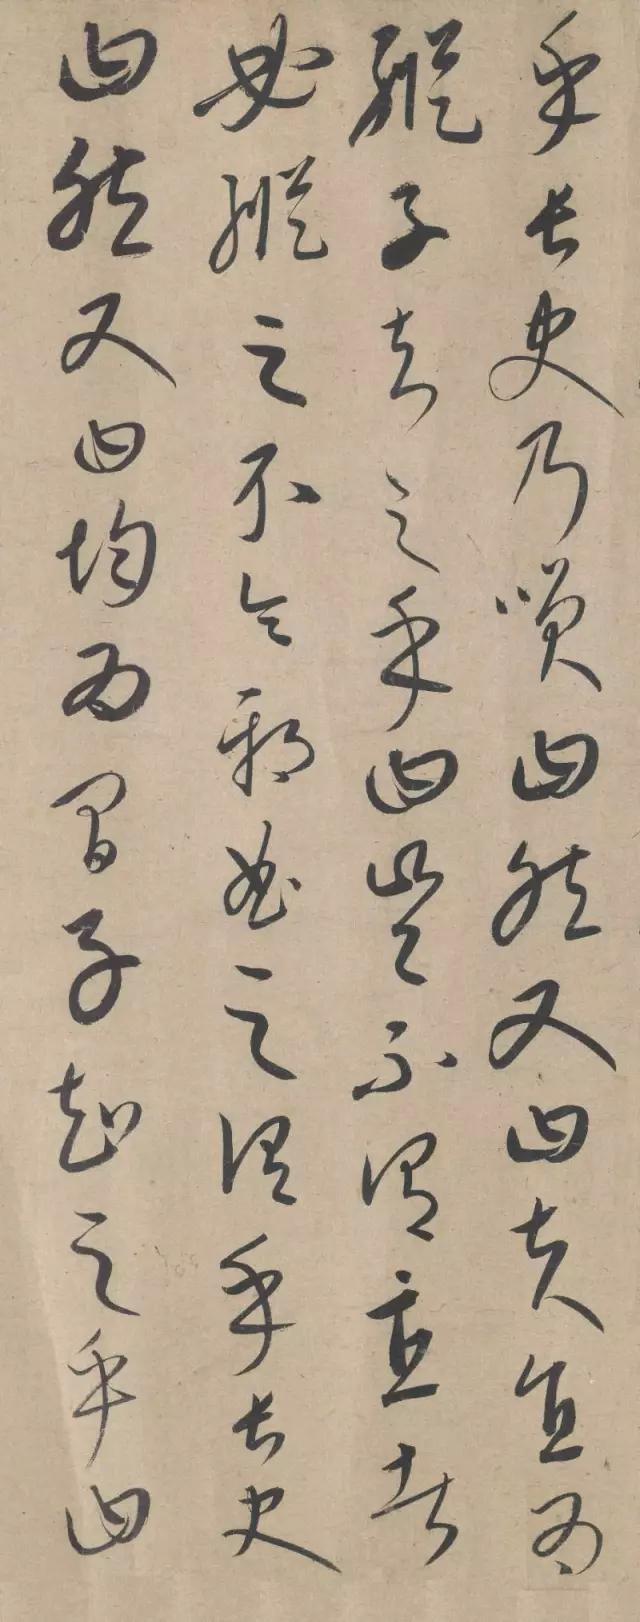 乎長史乃咲曰然又曰夫直為
縱子知之乎曰豈不謂直者
必縱之不令邪曲之謂乎長史
曰然又曰均為間子知之乎曰